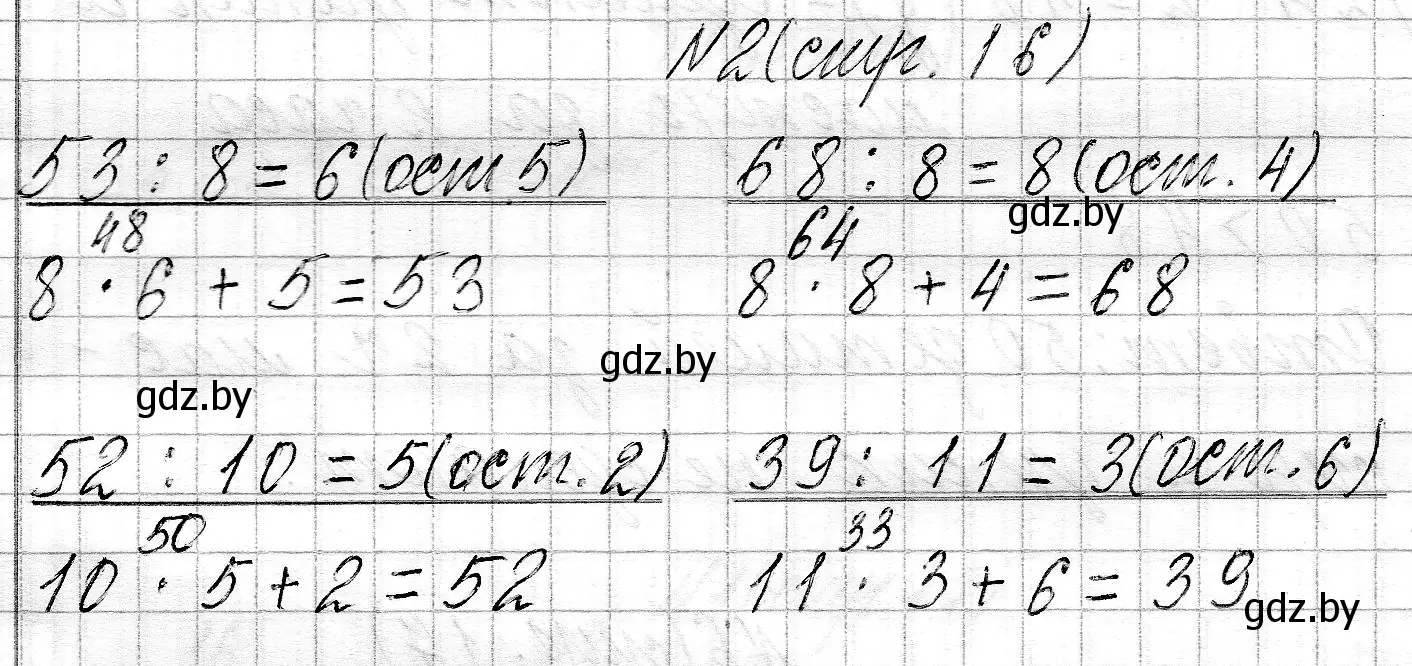 N2(стр. 16)
53 : 8 = 6(ост 5)
48
8 · 6 + 5 = 53
68 : 8 = 8(ост. 4)
gdz.by
64
8 · 8 + 4 = 68
gdz.by
gdz.by
52 : 10 = 5(ост. 2)
50
10 · 5 + 2 = 52
39 : 11 = 3(ост. 6)
33
11 · 3 + 6 = 39
gdz.by